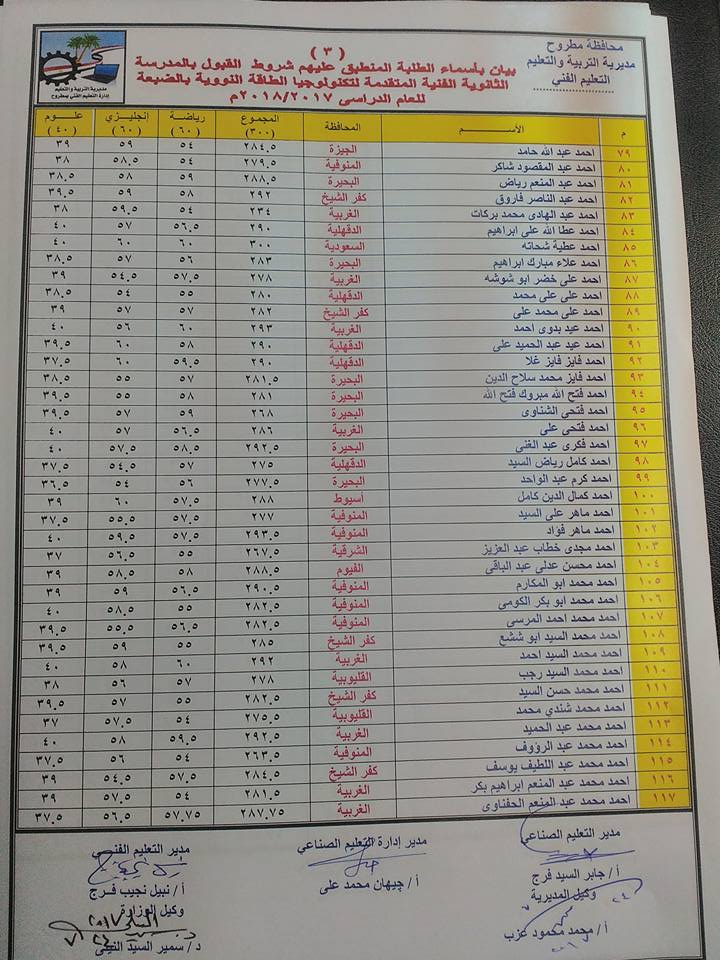 محافظة مطروح
مديرية التربية والتعليم
التعليم الفني
( ٣ )
بيان بأسماء الطلبة المنطبق عليهم شروط القبول بالمدرسة
الثانوية الفنية المتقدمة لتكنولوجيا الطاقة النووية بالضبعة
للعام الدراسى ٢٠١٨/٢٠١٧م
مديرية التربية والتعليم
إدارة التعليم الفني بمطروح
م الأســـم المحافظة المجموع (٣٠٠) رياضة (٦٠) إنجليزي (٦٠) علوم (٤٠)
٧٩ احمد عبد الله حامد الجيزة ٢٨٤.٥ ٥٤ ٥٩ ٣٩
٨٠ احمد عبد المقصود شاكر المنوفية ٢٧٩.٥ ٥٤ ٥٨.٥ ٣٨
٨١ احمد عبد المنعم رياض البحيرة ٢٨٨.٥ ٥٩ ٥٨ ٣٨.٥
٨٢ احمد عبد الناصر فاروق كفر الشيخ ٢٩٢ ٥٨ ٥٩ ٣٩.٥
٨٣ احمد عبد الهادى محمد بركات الغربية ٢٣٤ ٥٤ ٥٩.٥ ٣٨
٨٤ احمد عطا الله على ابراهيم الدقهلية ٢٩٠ ٥٦.٥ ٥٧ ٤٠
٨٥ احمد عطية شحاته السعودية ٣٠٠ ٦٠ ٦٠ ٤٠
٨٦ احمد علاء مبارك ابراهيم البحيرة ٢٨٣ ٥٦ ٥٧ ٣٨.٥
٨٧ احمد على خضر ابو شوشه الغربية ٢٧٨ ٥٧.٥ ٥٤.٥ ٣٩
٨٨ احمد على على محمد الدقهلية ٢٨٠ ٥٥ ٥٤ ٣٨.٥
٨٩ احمد على محمد على كفر الشيخ ٢٨٢ ٥٧ ٥٧ ٣٩
٩٠ احمد عيد بدوى احمد الغربية ٢٩٣ ٦٠ ٥٦ ٤٠
٩١ احمد عيد عبد الحميد على الدقهلية ٢٩٠ ٥٨ ٦٠ ٣٩.٥
٩٢ احمد فايز فايز غلا الدقهلية ٢٩٠ ٥٩.٥ ٦٠ ٣٧.٥
٩٣ احمد فايز محمد سلاح الدين البحيرة ٢٨١.٥ ٥٧ ٥٥ ٣٨.٥
٩٤ احمد فتح الله مبروك فتح الله البحيرة ٢٨١ ٥٨ ٥٥ ٣٩.٥
٩٥ احمد فتحى الشناوى البحيرة ٢٦٨ ٥٩ ٥٧ ٣٩.٥
٩٦ احمد فتحى على الغربية ٢٨٦ ٥٦.٥ ٥٧ ٤٠
٩٧ احمد فكرى عبد الغنى البحيرة ٢٩٢.٥ ٥٨.٥ ٥٧.٥ ٤٠
٩٨ احمد كامل رياض السيد الدقهلية ٢٧٥ ٥٧ ٥٤.٥ ٣٧.٥
٩٩ احمد كرم عبد الواحد البحيرة ٢٧٧.٥ ٥٦ ٥٤ ٣٦.٥
١٠٠ احمد كمال الدين كامل أسيوط ٢٨٨ ٥٧.٥ ٦٠ ٣٩
١٠١ احمد ماهر على السيد المنوفية ٢٧٧ ٥٧.٥ ٥٥.٥ ٣٧.٥
١٠٢ احمد ماهر فؤاد المنوفية ٢٩٣.٥ ٥٧.٥ ٥٩.٥ ٤٠
١٠٣ احمد مجدى خطاب عبد العزيز الشرقية ٢٦٧.٥ ٥٥ ٥٦.٥ ٣٧
١٠٤ احمد محسن عدلى عبد الباقى الفيوم ٢٨٨.٥ ٥٨ ٥٨.٥ ٣٩
١٠٥ احمد محمد ابو المكارم المنوفية ٢٩٠.٥ ٥٦.٥ ٥٩ ٣٩
١٠٦ احمد محمد ابو بكر الكومى المنوفية ٢٨٢.٥ ٥٥ ٥٨.٥ ٤٠
١٠٧ احمد محمد احمد المرسى المنوفية ٢٨٢.٥ ٥٦.٥ ٥٥.٥ ٣٩.٥
١٠٨ احمد محمد السيد ابو ششع كفر الشيخ ٢٨٥ ٥٥ ٥٩ ٣٩.٥
١٠٩ احمد محمد السيد احمد الغربية ٢٩٢ ٦٠ ٥٨ ٤٠
١١٠ احمد محمد السيد رجب القليوبية ٢٧٨ ٥٧ ٥٦ ٣٨
١١١ احمد محمد حسن السيد كفر الشيخ ٢٨٢.٥ ٥٥ ٥٧ ٣٩.٥
١١٢ احمد محمد شندي محمد القليوبية ٢٧٥.٥ ٥٤ ٥٧.٥ ٣٧
١١٣ احمد محمد عبد الحميد الغربية ٢٩٢.٥ ٥٩.٥ ٥٨ ٤٠
١١٤ احمد محمد عبد الرؤوف المنوفية ٢٦٣.٥ ٥٤ ٥٦ ٣٧.٥
١١٥ احمد محمد عبد اللطيف يوسف كفر الشيخ ٢٨٤.٥ ٥٧.٥ ٥٤.٥ ٣٩
١١٦ احمد محمد عبد المنعم ابراهيم بكر الغربية ٢٨١.٥ ٥٤ ٥٧.٥ ٣٩
١١٧ احمد محمد عبد المنعم الحفناوى الغربية ٢٨٧.٧٥ ٥٧.٧٥ ٥٦.٥ ٣٧.٥
مدير التعليم الصناعي مدير إدارة التعليم الصناعي مدير التعليم الفني
أ/ جابر السيد فرج أ/ جيهان محمد على أ/ نبيل نجيب فرج
وكيل المديرية وكيل الوزارة
أ/ محمد محمود عزب د/ سمير السيد